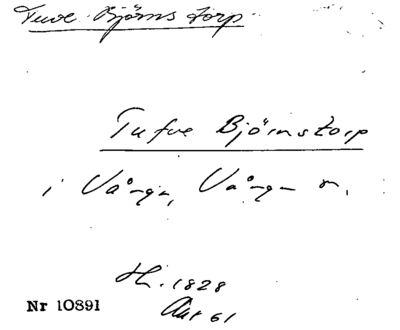 Tuve Björnstorp
Tufve Björnstorp
i Vånga, Vånga sn,
Hr. 1828
Akt 61
Nr 10891